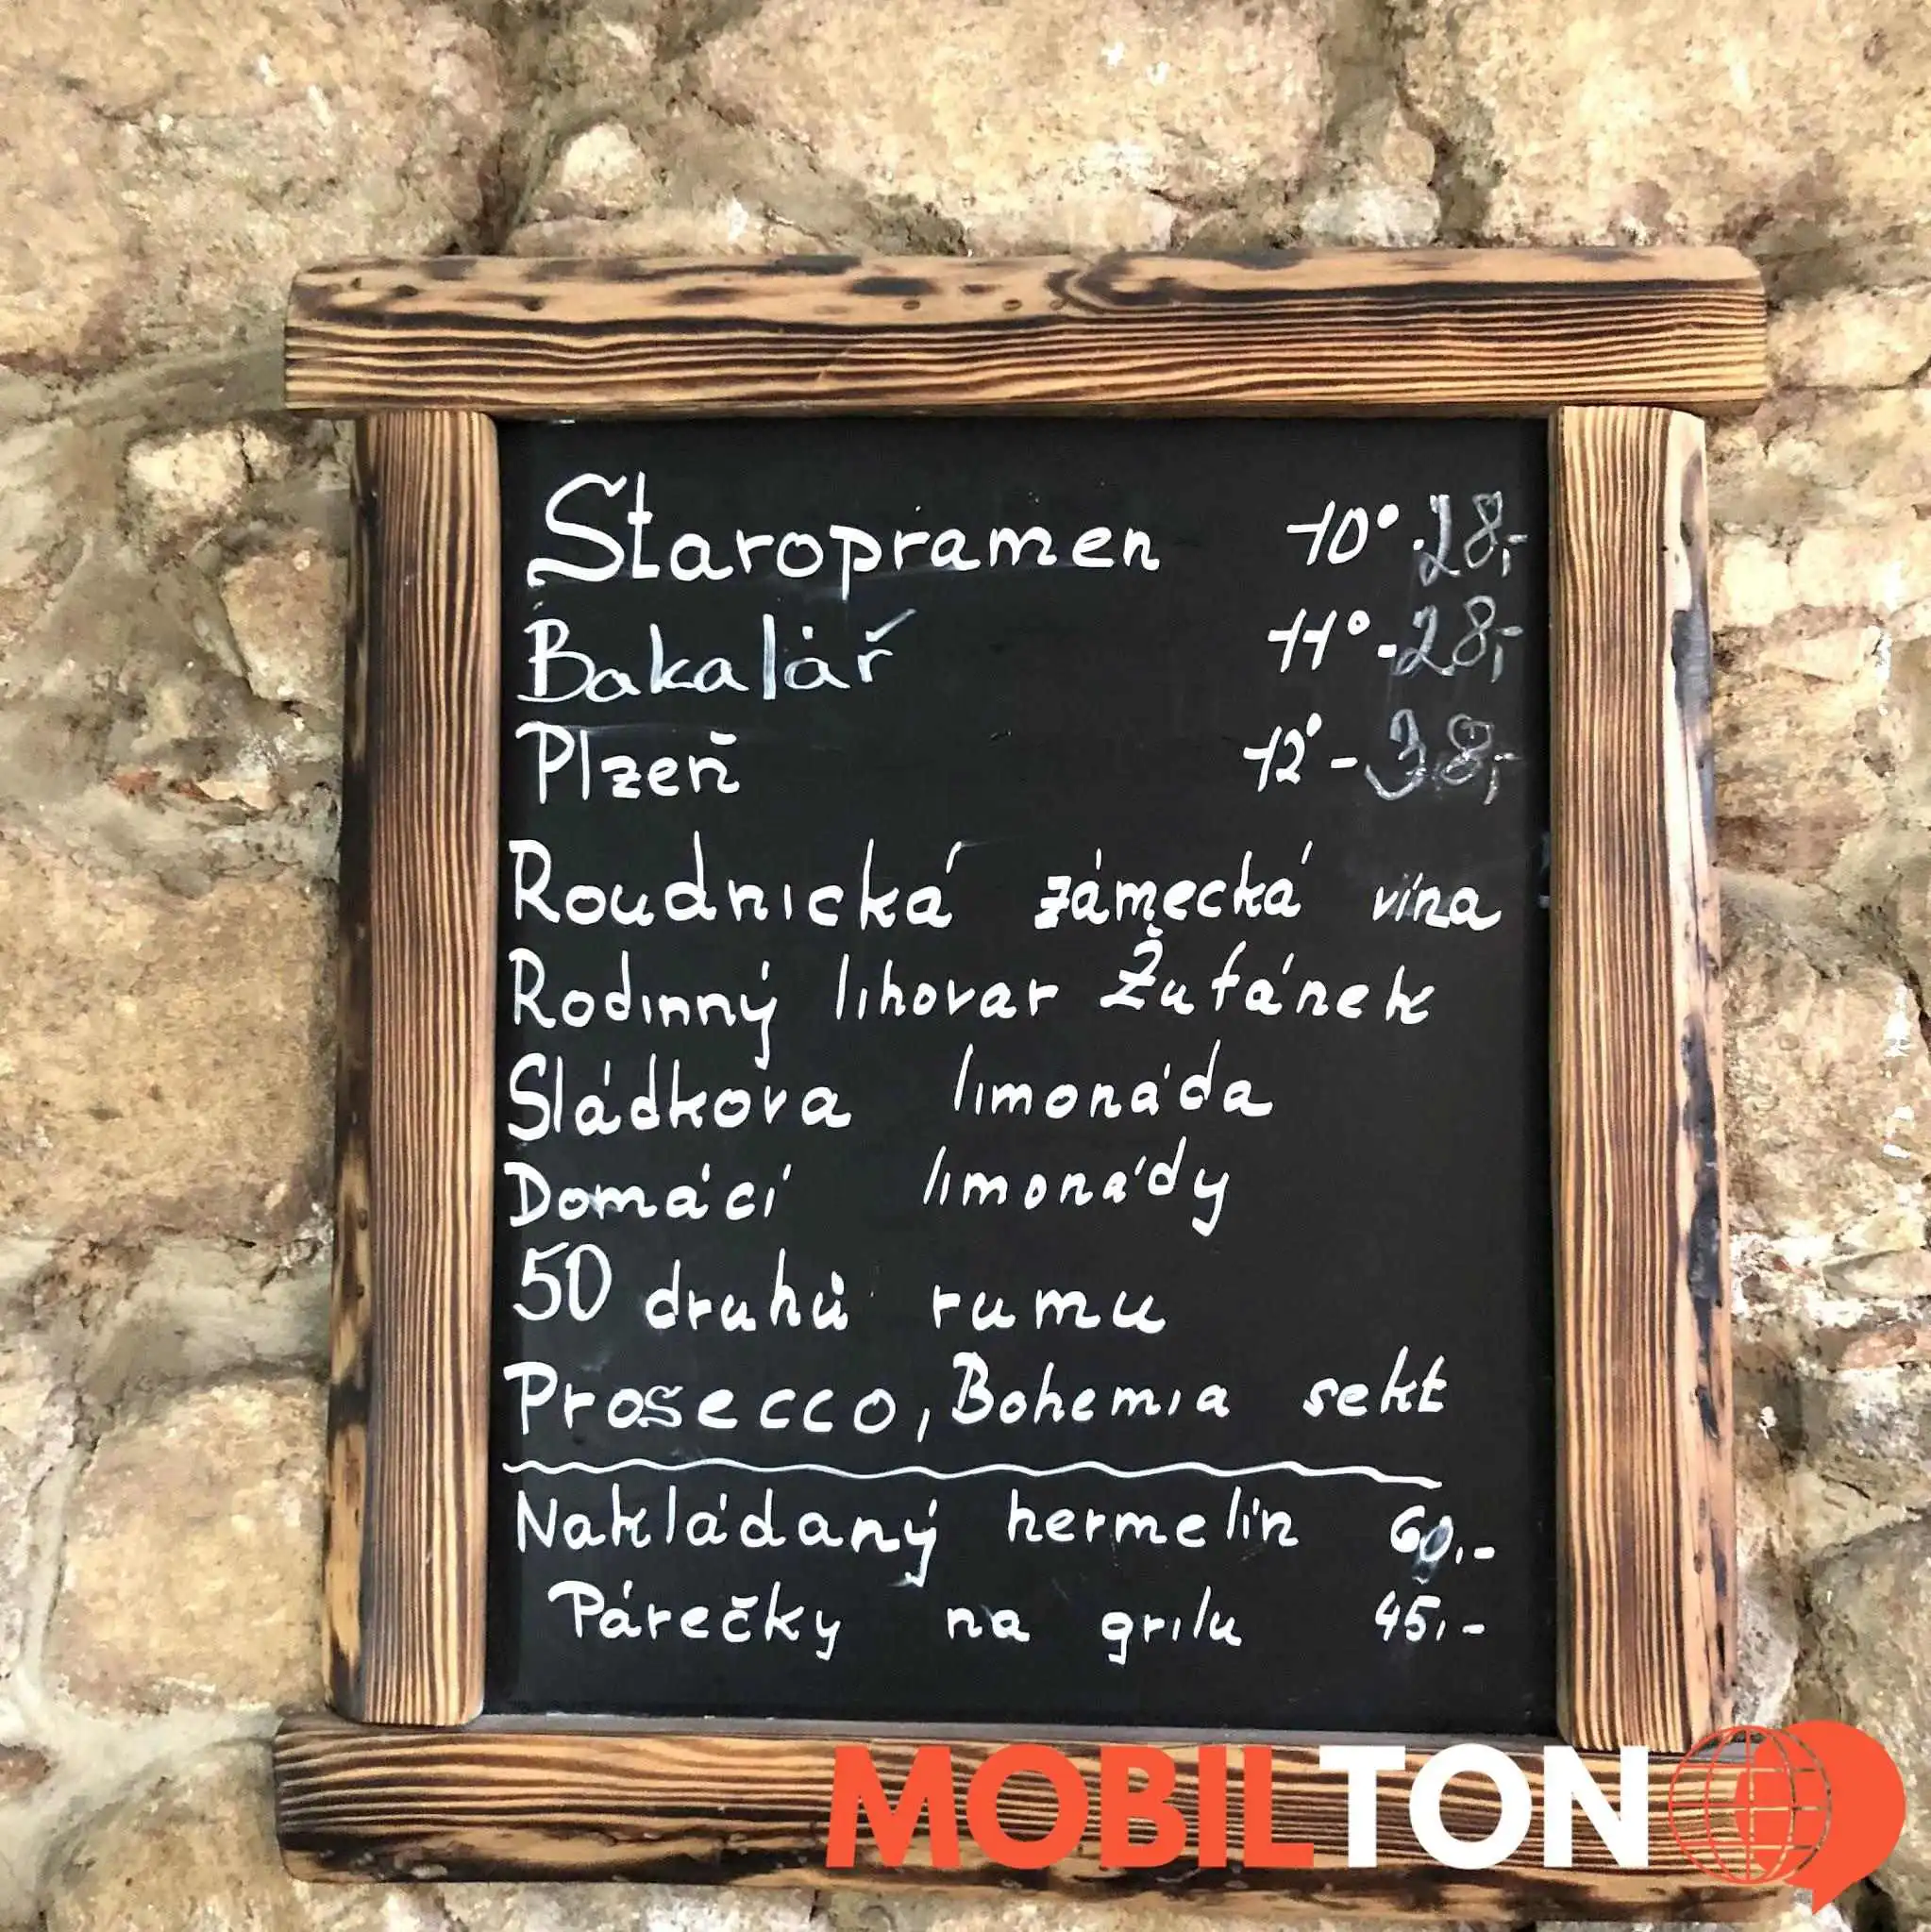 Staropramen 10° - 28,-
Bakalář 11° - 28,-
Plzeň 12° - 38,-
Roudnická zámecká vína
Rodinný lihovar Žufánek
Sládkova limonáda
Domácí limonády
50 druhů rumu
Prosecco, Bohemia sekt
Nakládaný hermelín 60,-
Párečky na grilu 45,-
MOBILTON